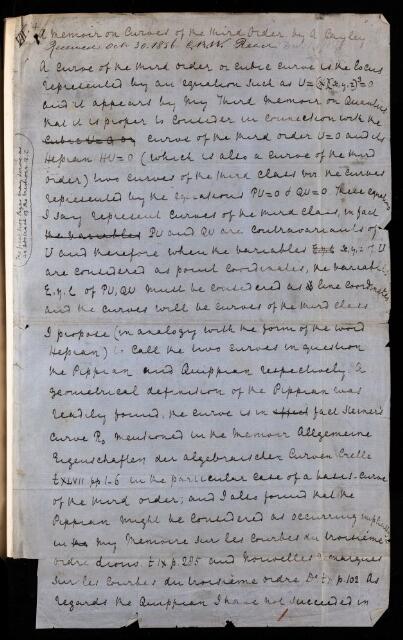 A memoir on Curves of the third Order, by A Cayley
Received Oct. 30. 1856 Read
A curve of the third order or cubic curve is the locus
represented by an equation such as U = (*)(x,y,z)³ = 0
and it appears by my Third Memoir on Quantics
that it is proper to consider in connection with the
cubic U = 0 curve of the third order U=0 and its
Hessian HU=0 (which is also a curve of the third
order) two curves of the third class
represented by the equations PU=0 & QU=0 These equations
I say represent curves of the third class, in fact
the variables PU and QU are contravariants of
U and therefore when the variables x.y.z of U
are considered as point coordinates, the variables
ξ.η.ζ of PU, QU must be considered as line coordinates
and the curves will be curves of the third class
I propose (in analogy with the form of the word
Hessian) to call the two curves in question
the Pippian and Quippian respectively. A
geometrical definition of the Pippian was
readily found, the curve is in effect fact Steiner's
curve R₀ mentioned in the memoir Allgemeine
Eigenschaften der algebraischen Curven Crelle
t XLVII pp 1-6 in the particular case of a basis-curve
of the third order; and I also found that the
Pippian might be considered as occurring implicitly
in my Mémoire sur les courbes du troisième
ordre Liouv. t IX p. 285 and Nouvelles remarques
sur les courbes du troisième ordre Do t X p. 102 As
regards the Quippian I have not succeeded in